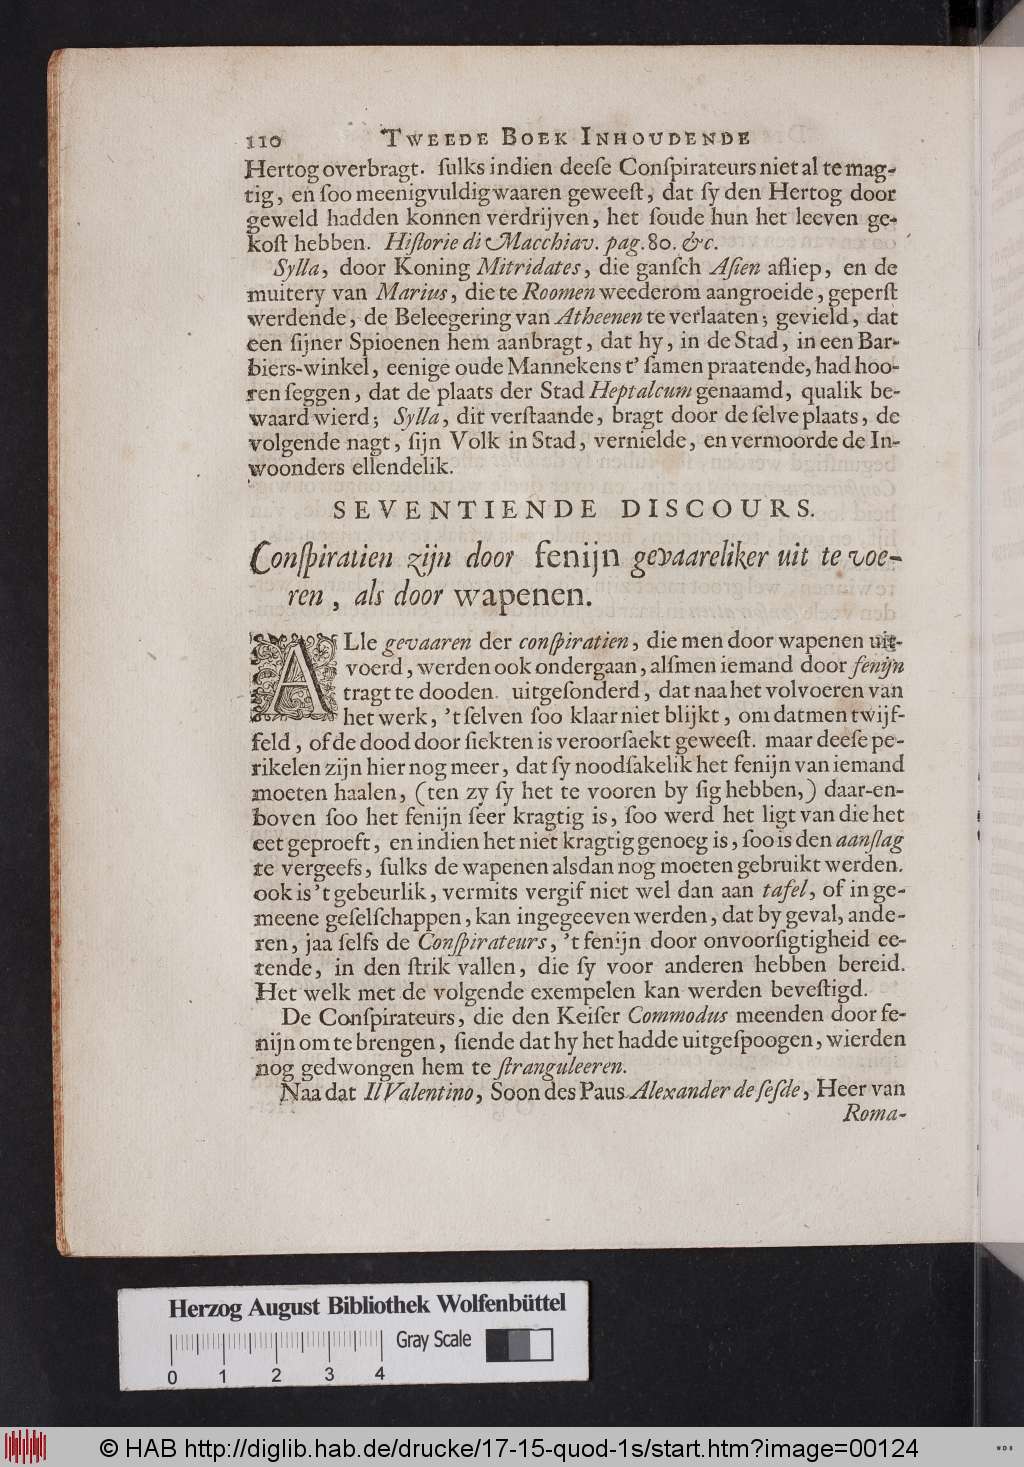 110 TWEEDE BOEK INHOUDENDE
Hertog overbragt. ſulks indien deeſe Conſpirateurs niet al te mag-
tig, en ſoo meenigvuldig waaren geweeſt, dat ſy den Hertog door
geweld hadden konnen verdrijven, het ſoude hun het leeven ge-
koſt hebben. Hiſtorie di Macchiav. pag. 80. &c.
Sylla, door Koning Mitridates, die ganſch Aſien afliep, en de
muitery van Marius, die te Roomen weederom aangroeide, geperſt
werdende, de Beleegering van Atheenen te verlaaten; gevield, dat
een ſijner Spioenen hem aanbragt, dat hy, in de Stad, in een Bar-
biers-winkel, eenige oude Mannekens t' ſamen praatende, had hoo-
ren ſeggen, dat de plaats der Stad Heptalcum genaamd, qualik be-
waard wierd; Sylla, dit verſtaande, bragt door de ſelve plaats, de
volgende nagt, ſijn Volk in Stad, vernielde, en vermoorde de In-
woonders ellendelik.
SEVENTIENDE DISCOURS.
Conſpiratien zijn door fenijn gevaareliker uit te voe-
ren, als door wapenen.
ALle gevaaren der conſpiratien, die men door wapenen uit-
voerd, werden ook ondergaan, alſmen iemand door fenijn
tragt te dooden. uitgeſonderd, dat naa het volvoeren van
het werk, 't ſelven ſoo klaar niet blijkt, om datmen twijf-
feld, of de dood door ſiekten is veroorſaekt geweeſt. maar deeſe pe-
rikelen zijn hier nog meer, dat ſy noodſakelik het fenijn van iemand
moeten haalen, (ten zy ſy het te vooren by ſig hebben,) daar-en-
boven ſoo het fenijn ſeer kragtig is, ſoo werd het ligt van die het
eet geproeft, en indien het niet kragtig genoeg is, ſoo is den aanſlag
te vergeefs, ſulks de wapenen alsdan nog moeten gebruikt werden.
ook is 't gebeurlik, vermits vergif niet wel dan aan tafel, of in ge-
meene geſelſchappen, kan ingegeeven werden, dat by geval, ande-
ren, jaa ſelfs de Conſpirateurs, 't fenijn door onvoorſigtigheid ee-
tende, in den ſtrik vallen, die ſy voor anderen hebben bereid.
Het welk met de volgende exempelen kan werden beveſtigd.
De Conſpirateurs, die den Keiſer Commodus meenden door fe-
nijn om te brengen, ſiende dat hy het hadde uitgeſpoogen, wierden
nog gedwongen hem te ſtranguleeren.
Naa dat Il Valentino, Soon des Paus Alexander de ſeſde, Heer van
Roma-
Herzog August Bibliothek Wolfenbüttel
Gray Scale
0 1 2 3 4
© HAB http://diglib.hab.de/drucke/17-15-quod-1s/start.htm?image=00124